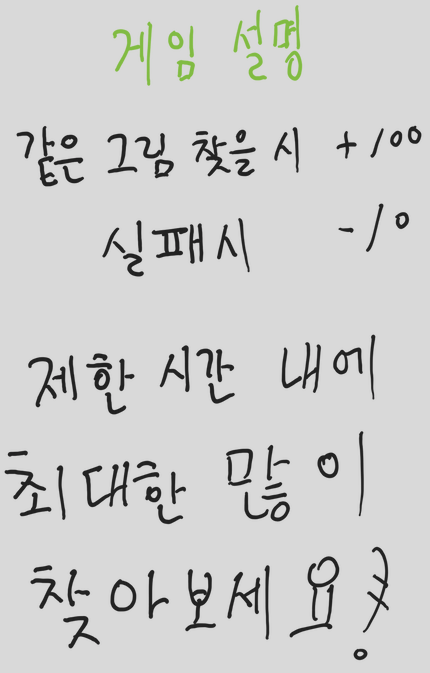 게임 설명
같은 그림 찾을 시 +100
실패시 -10
제한 시간 내에
최대한 많이
찾아보세요!